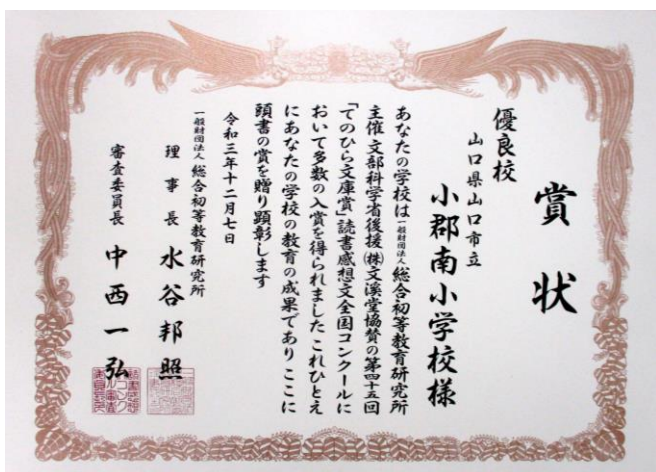 賞状
優良校
山口県山口市立
小郡南小学校様
あなたの学校は一般財団法人総合初等教育研究所
主催 文部科学省後援 ㈱文溪堂協賛の第四十五回
「てのひら文庫賞」読書感想文全国コンクールに
おいて多数の入賞を得られました これひとえ
にあなたの学校の教育の成果であり ここに
頭書の賞を贈り顕彰します
令和三年十二月七日
一般財団法人 総合初等教育研究所
理事長 水谷邦照
審査委員長 中西一弘